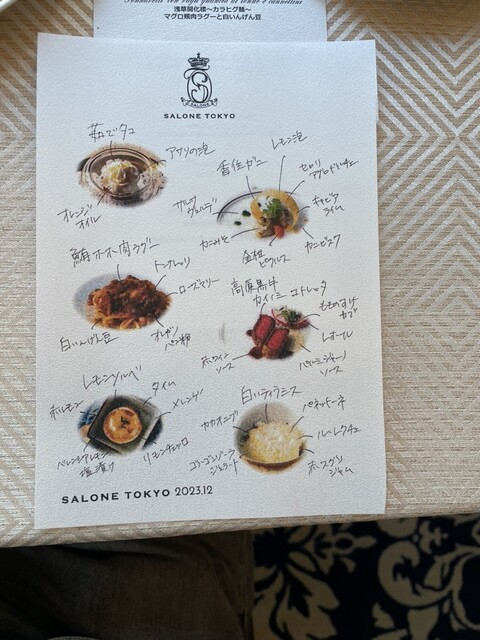 浅草開化楼〜カラヒグ麺〜
マグロ頬肉ラグーと白いんげん豆
SALONE
SALONE TOKYO
茹でタコ
アサリの泡
オレンジ
オイル
香住ガニ
レモン泡
セロリ
サルサ
ヴェルデ
キャビア
ライム
カニみそ
金柑
ピクルス
カニビスク
鮪ホホ肉ラグー
トンナレッリ
ローズマリー
白いんげん豆
オレガノ
パン粉
高原黒牛
カイノミ コトレッタ
もものすけ
カブ
レホール
赤ワイン
ソース
パルミジャーノ
ソース
レモンソルベ
タイム
メレンゲ
バレンシアレモン
塩漬け
リモンチェッロ
白いティラミス
パネットーネ
カカオニブ
ル・レクチェ
ゴルゴンゾーラ
ジェラート
ジャム
SALONE TOKYO 2023.12